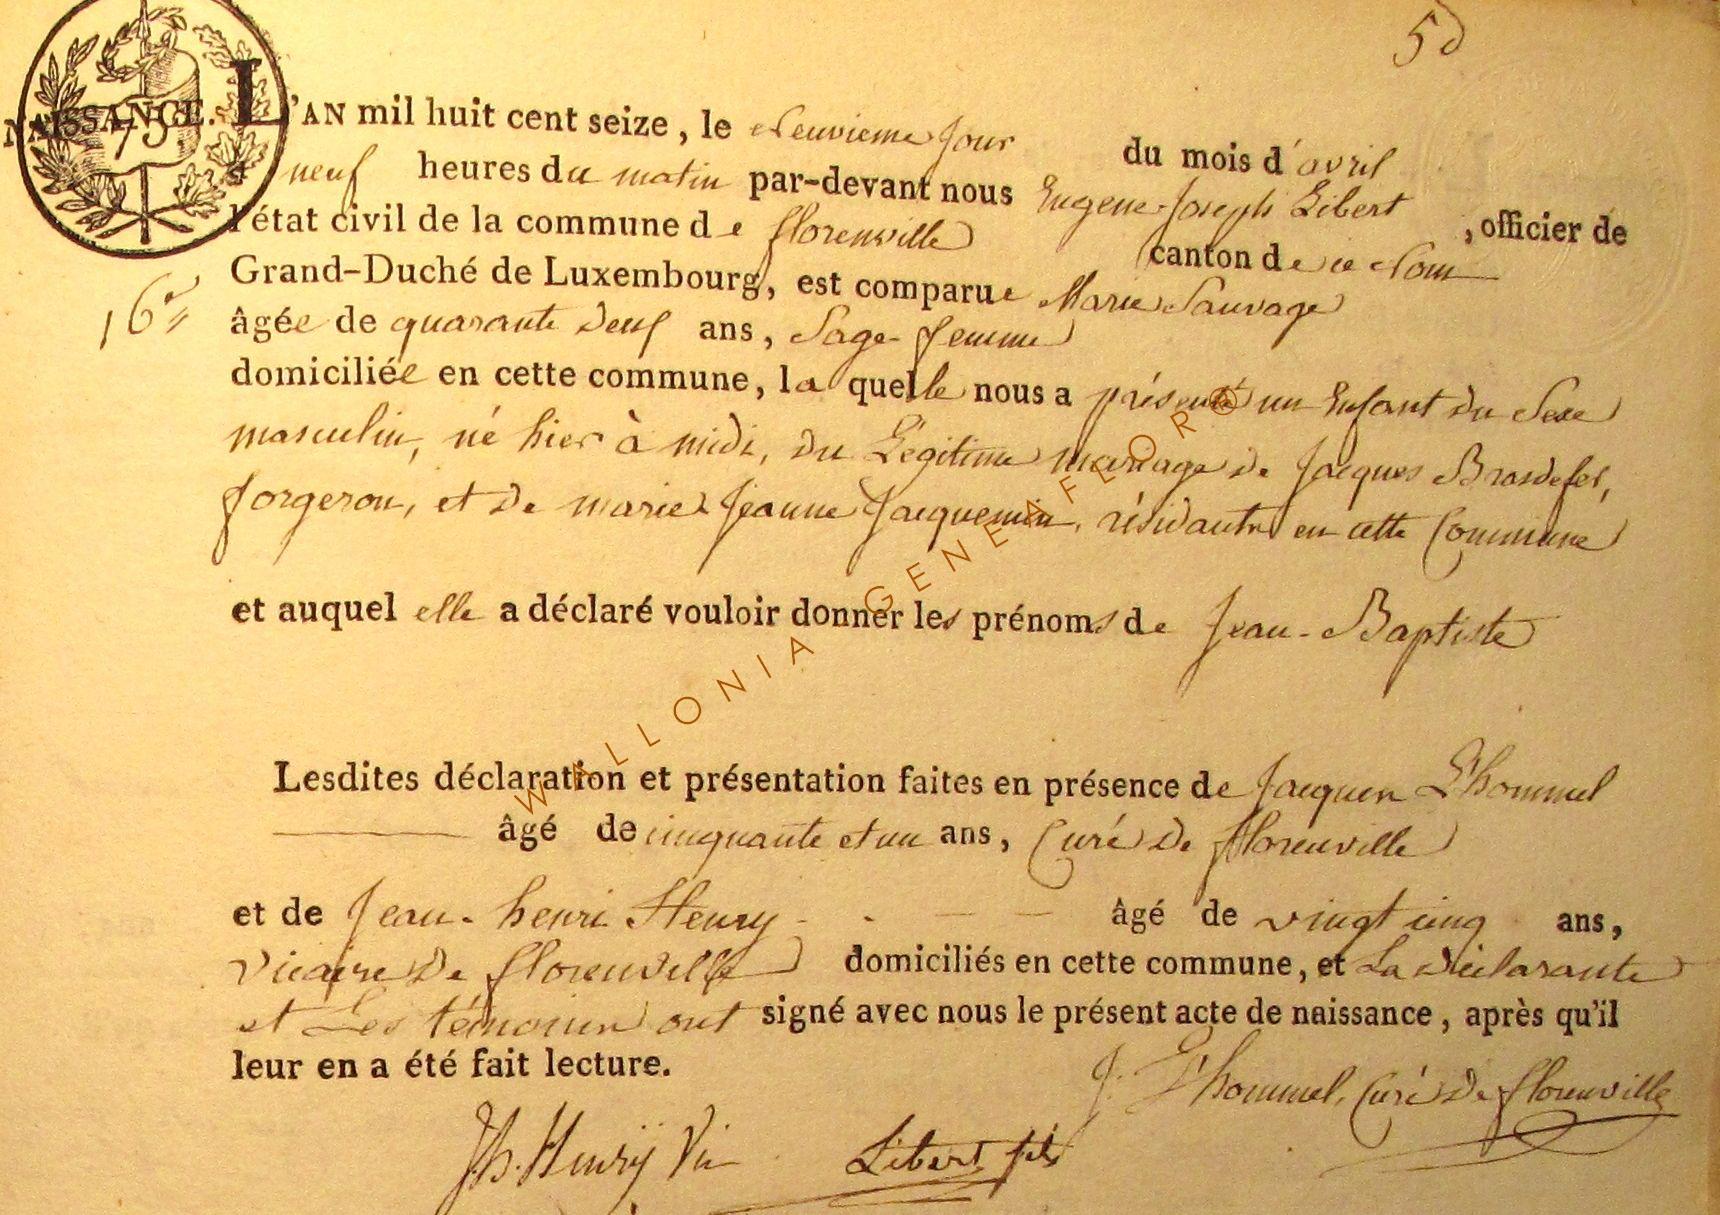 5
NAISSANCE. L'AN mil huit cent seize, le neuvieme jour du mois d'avril
75
à neuf heures du matin par-devant nous Eugene Joseph Libert, officier de
l'état civil de la commune de florenville canton de ce nom
Grand-Duché de Luxembourg, est comparue Marie Sauvage
16e
âgée de quarante neuf ans, Sage-femme
domiciliée en cette commune, la quelle nous a présenté un Enfant du Sexe
masculin, né hier à midi, du Légitime mariage de Jacques Brasdefer,
forgeron, et de marie Jeanne Jacquemin, résidants en cette Commune
et auquel elle a déclaré vouloir donner les prénoms de Jean-Baptiste
Lesdites déclaration et présentation faites en présence de Jacques L'hommel
âgé de cinquante et un ans, Curé de florenville
et de Jean-henri Henry âgé de vingt cinq ans,
vicaire de florenville domiciliés en cette commune, et La déclarante
et Les témoins ont signé avec nous le présent acte de naissance, après qu'il
leur en a été fait lecture.
J. L'hommel, Curé de florenville
J.h. Henrÿ Vic Libert fils
WALLONIA GENEAFLORE